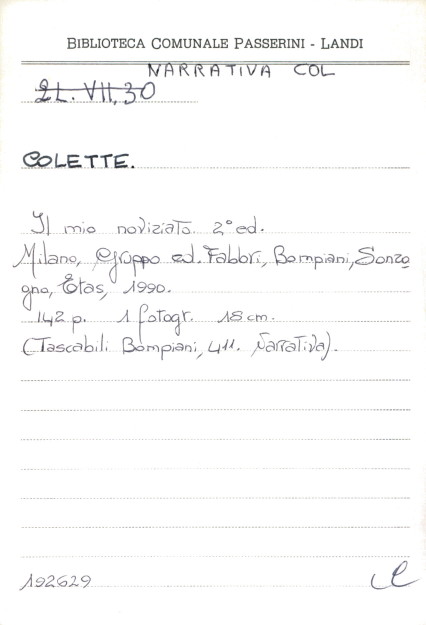 BIBLIOTECA COMUNALE PASSERINI - LANDI
NARRATIVA COL
2L. VII, 30
COLETTE.
Il mio noviziato. 2° ed.
Milano, Gruppo ed. Fabbri, Bompiani, Sonzo
gno, Etas, 1990.
142 p. 1 fotogr. 18 cm.
(Tascabili Bompiani, 411. Narrativa).
192629